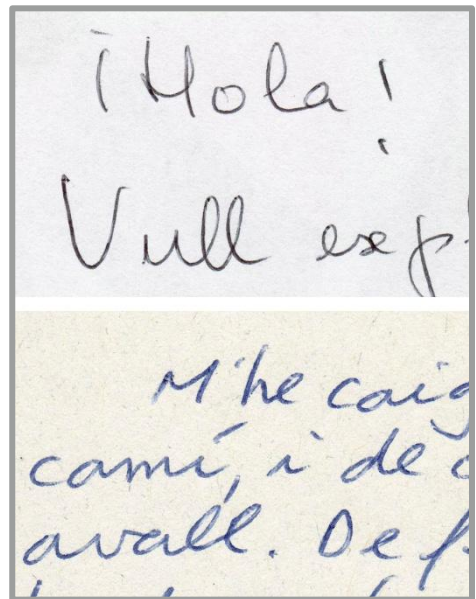 ¡Hola!
Vull exp
M'he caig
camí, i de
avall. De f